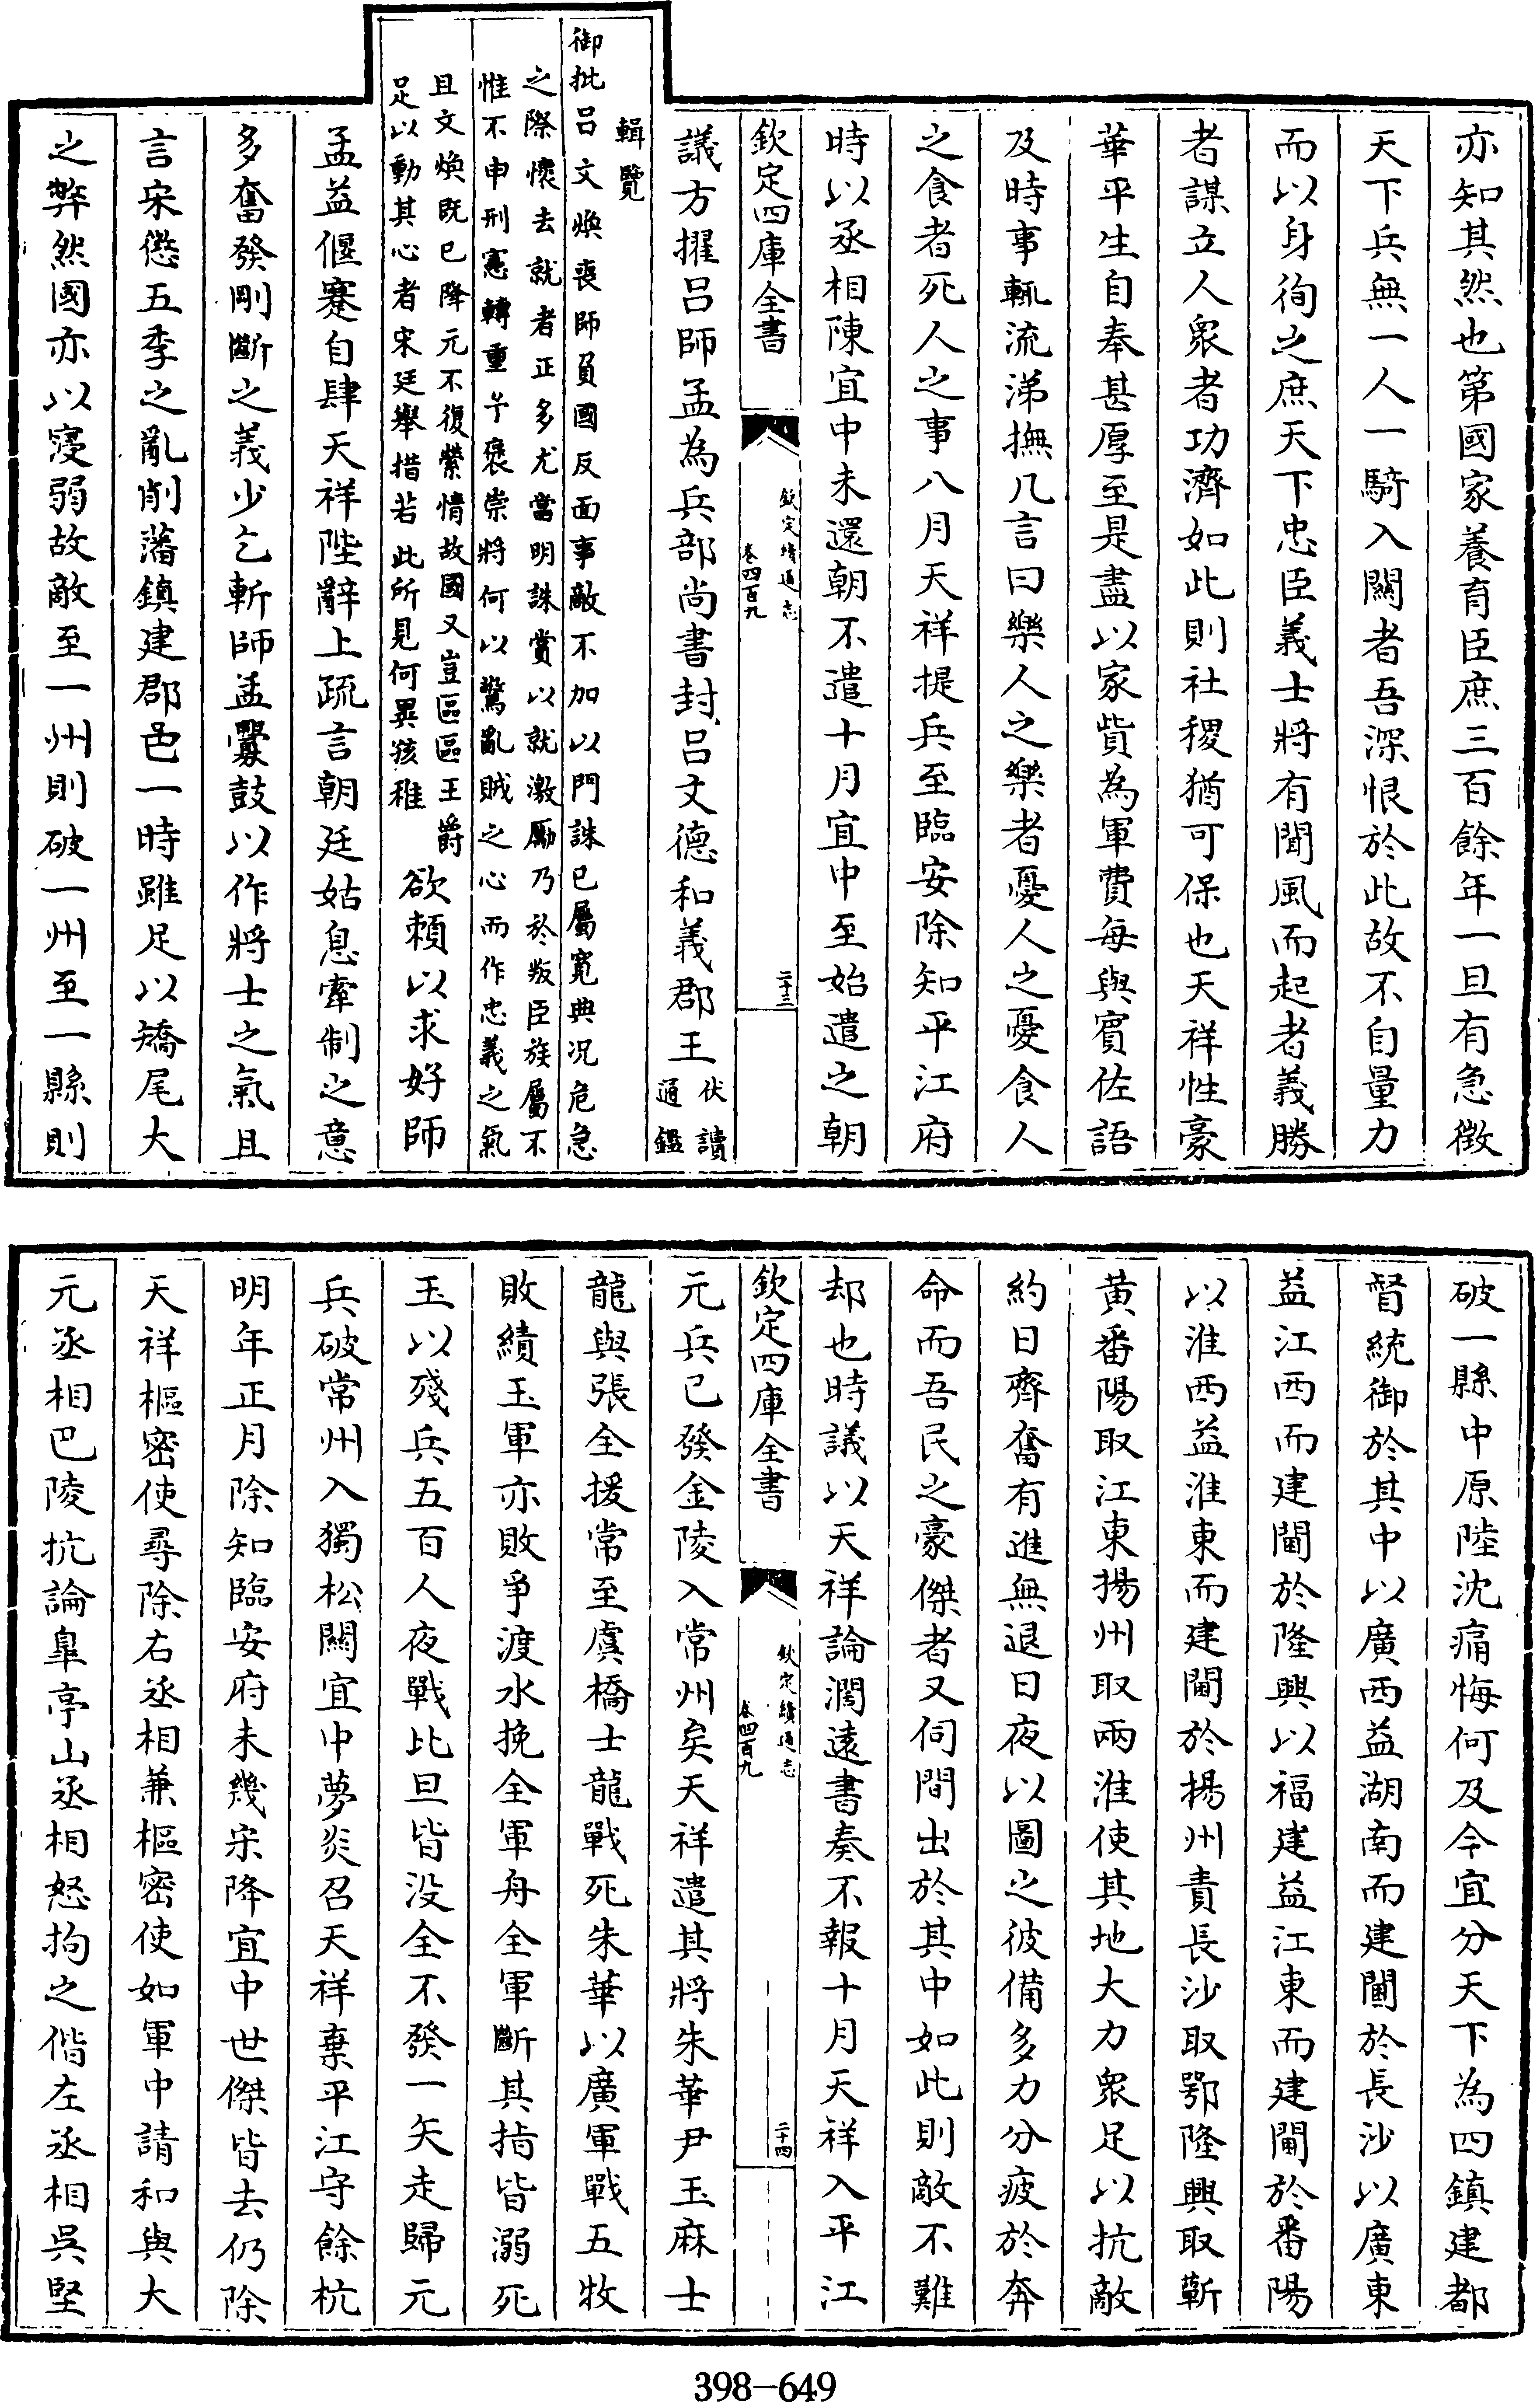 亦知其然也第國家養育臣庶三百餘年一旦有急徵
天下兵無一人一騎入關者吾深恨於此故不自量力
而以身徇之庶天下忠臣義士將有聞風而起者義勝
者謀立人衆者功濟如此則社稷猶可保也天祥性豪
華平生自奉甚厚至是盡以家貲為軍費每與賓佐語
及時事輒流涕撫几言曰樂人之樂者憂人之憂食人
之食者死人之事八月天祥提兵至臨安除知平江府
時以丞相陳宜中未還朝不遣十月宜中至始遣之朝
欽定四庫全書
欽定續通志
卷四百九
二十三
議方擢呂師孟為兵部尚書封呂文德和義郡王伏讀
通鑑
輯覽
御批呂文煥喪師負國反面事敵不加以門誅已屬寬典况危急
之際懷去就者正多尤當明誅賞以就激勵乃於叛臣族屬不
惟不申刑憲轉重予襃崇將何以驚亂賊之心而作忠義之氣
且文煥既已降元不復縈情故國又豈區區王爵
足以動其心者宋廷舉措若此所見何異孩稚
欲頼以求好師
孟益偃蹇自肆天祥陛辭上疏言朝廷姑息牽制之意
多奮發剛斷之義少乞斬師孟釁鼓以作將士之氣且
言宋懲五季之亂削藩鎮建郡邑一時雖足以矯尾大
之弊然國亦以寖弱故敵至一州則破一州至一縣則
破一縣中原陸沈痛悔何及今宜分天下為四鎮建都
督統御於其中以廣西益湖南而建閫於長沙以廣東
益江西而建閫於隆興以福建益江東而建閫於番陽
以淮西益淮東而建閫於揚州責長沙取鄂隆興取蘄
黄番陽取江東揚州取兩淮使其地大力衆足以抗敵
約日齊奮有進無退日夜以圖之彼備多力分疲於奔
命而吾民之豪傑者又伺間出於其中如此則敵不難
却也時議以天祥論濶遠書奏不報十月天祥入平江
欽定四庫全書
欽定續通志
卷四百九
二十四
元兵已發金陵入常州矣天祥遣其將朱華尹玉麻士
龍與張全援常至虞橋士龍戰死朱華以廣軍戰五牧
敗績玉軍亦敗爭渡水挽全軍舟全軍斷其指皆溺死
玉以殘兵五百人夜戰比旦皆没全不發一矢走歸元
兵破常州入獨松關宜中夢炎召天祥棄平江守餘杭
明年正月除知臨安府未幾宋降宜中世傑皆去仍除
天祥樞密使尋除右丞相兼樞密使如軍中請和與大
元丞相巴陵抗論臯亭山丞相怒拘之偕左丞相吳堅
398-649